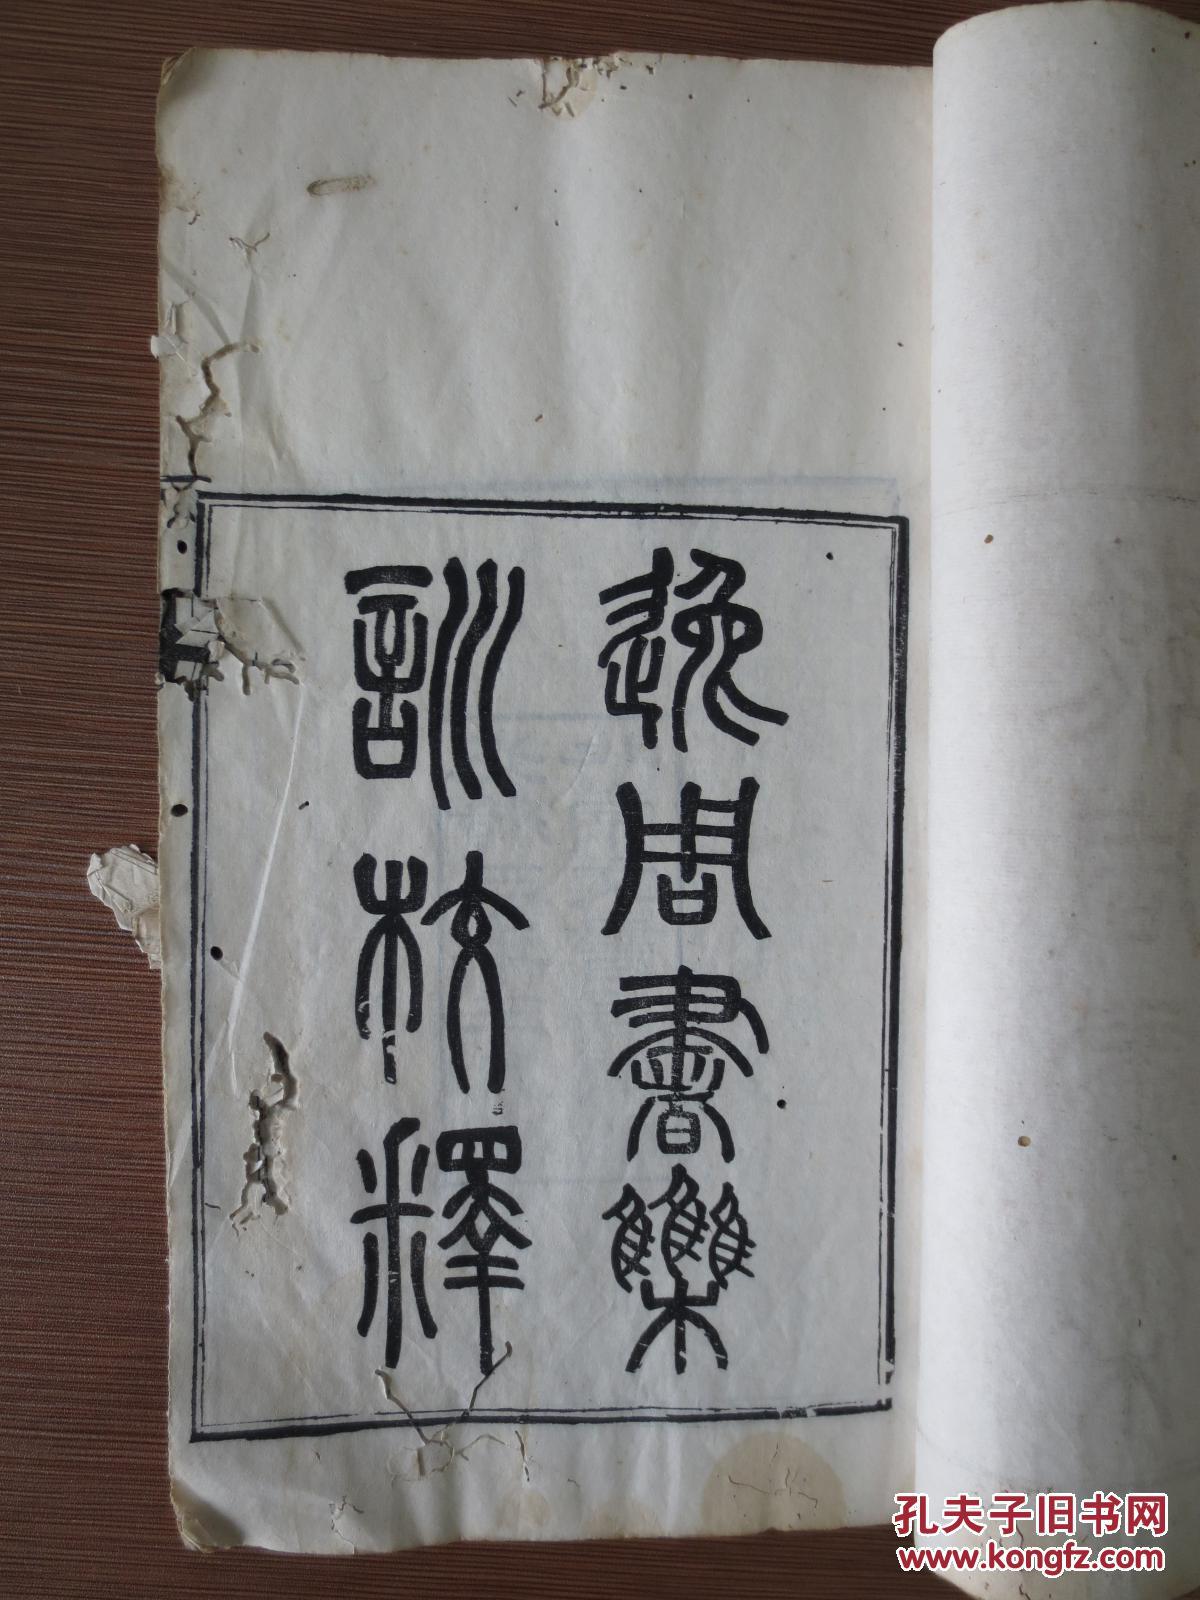 逸周書雧
訓校釋
孔夫子旧书网
www.kongfz.com